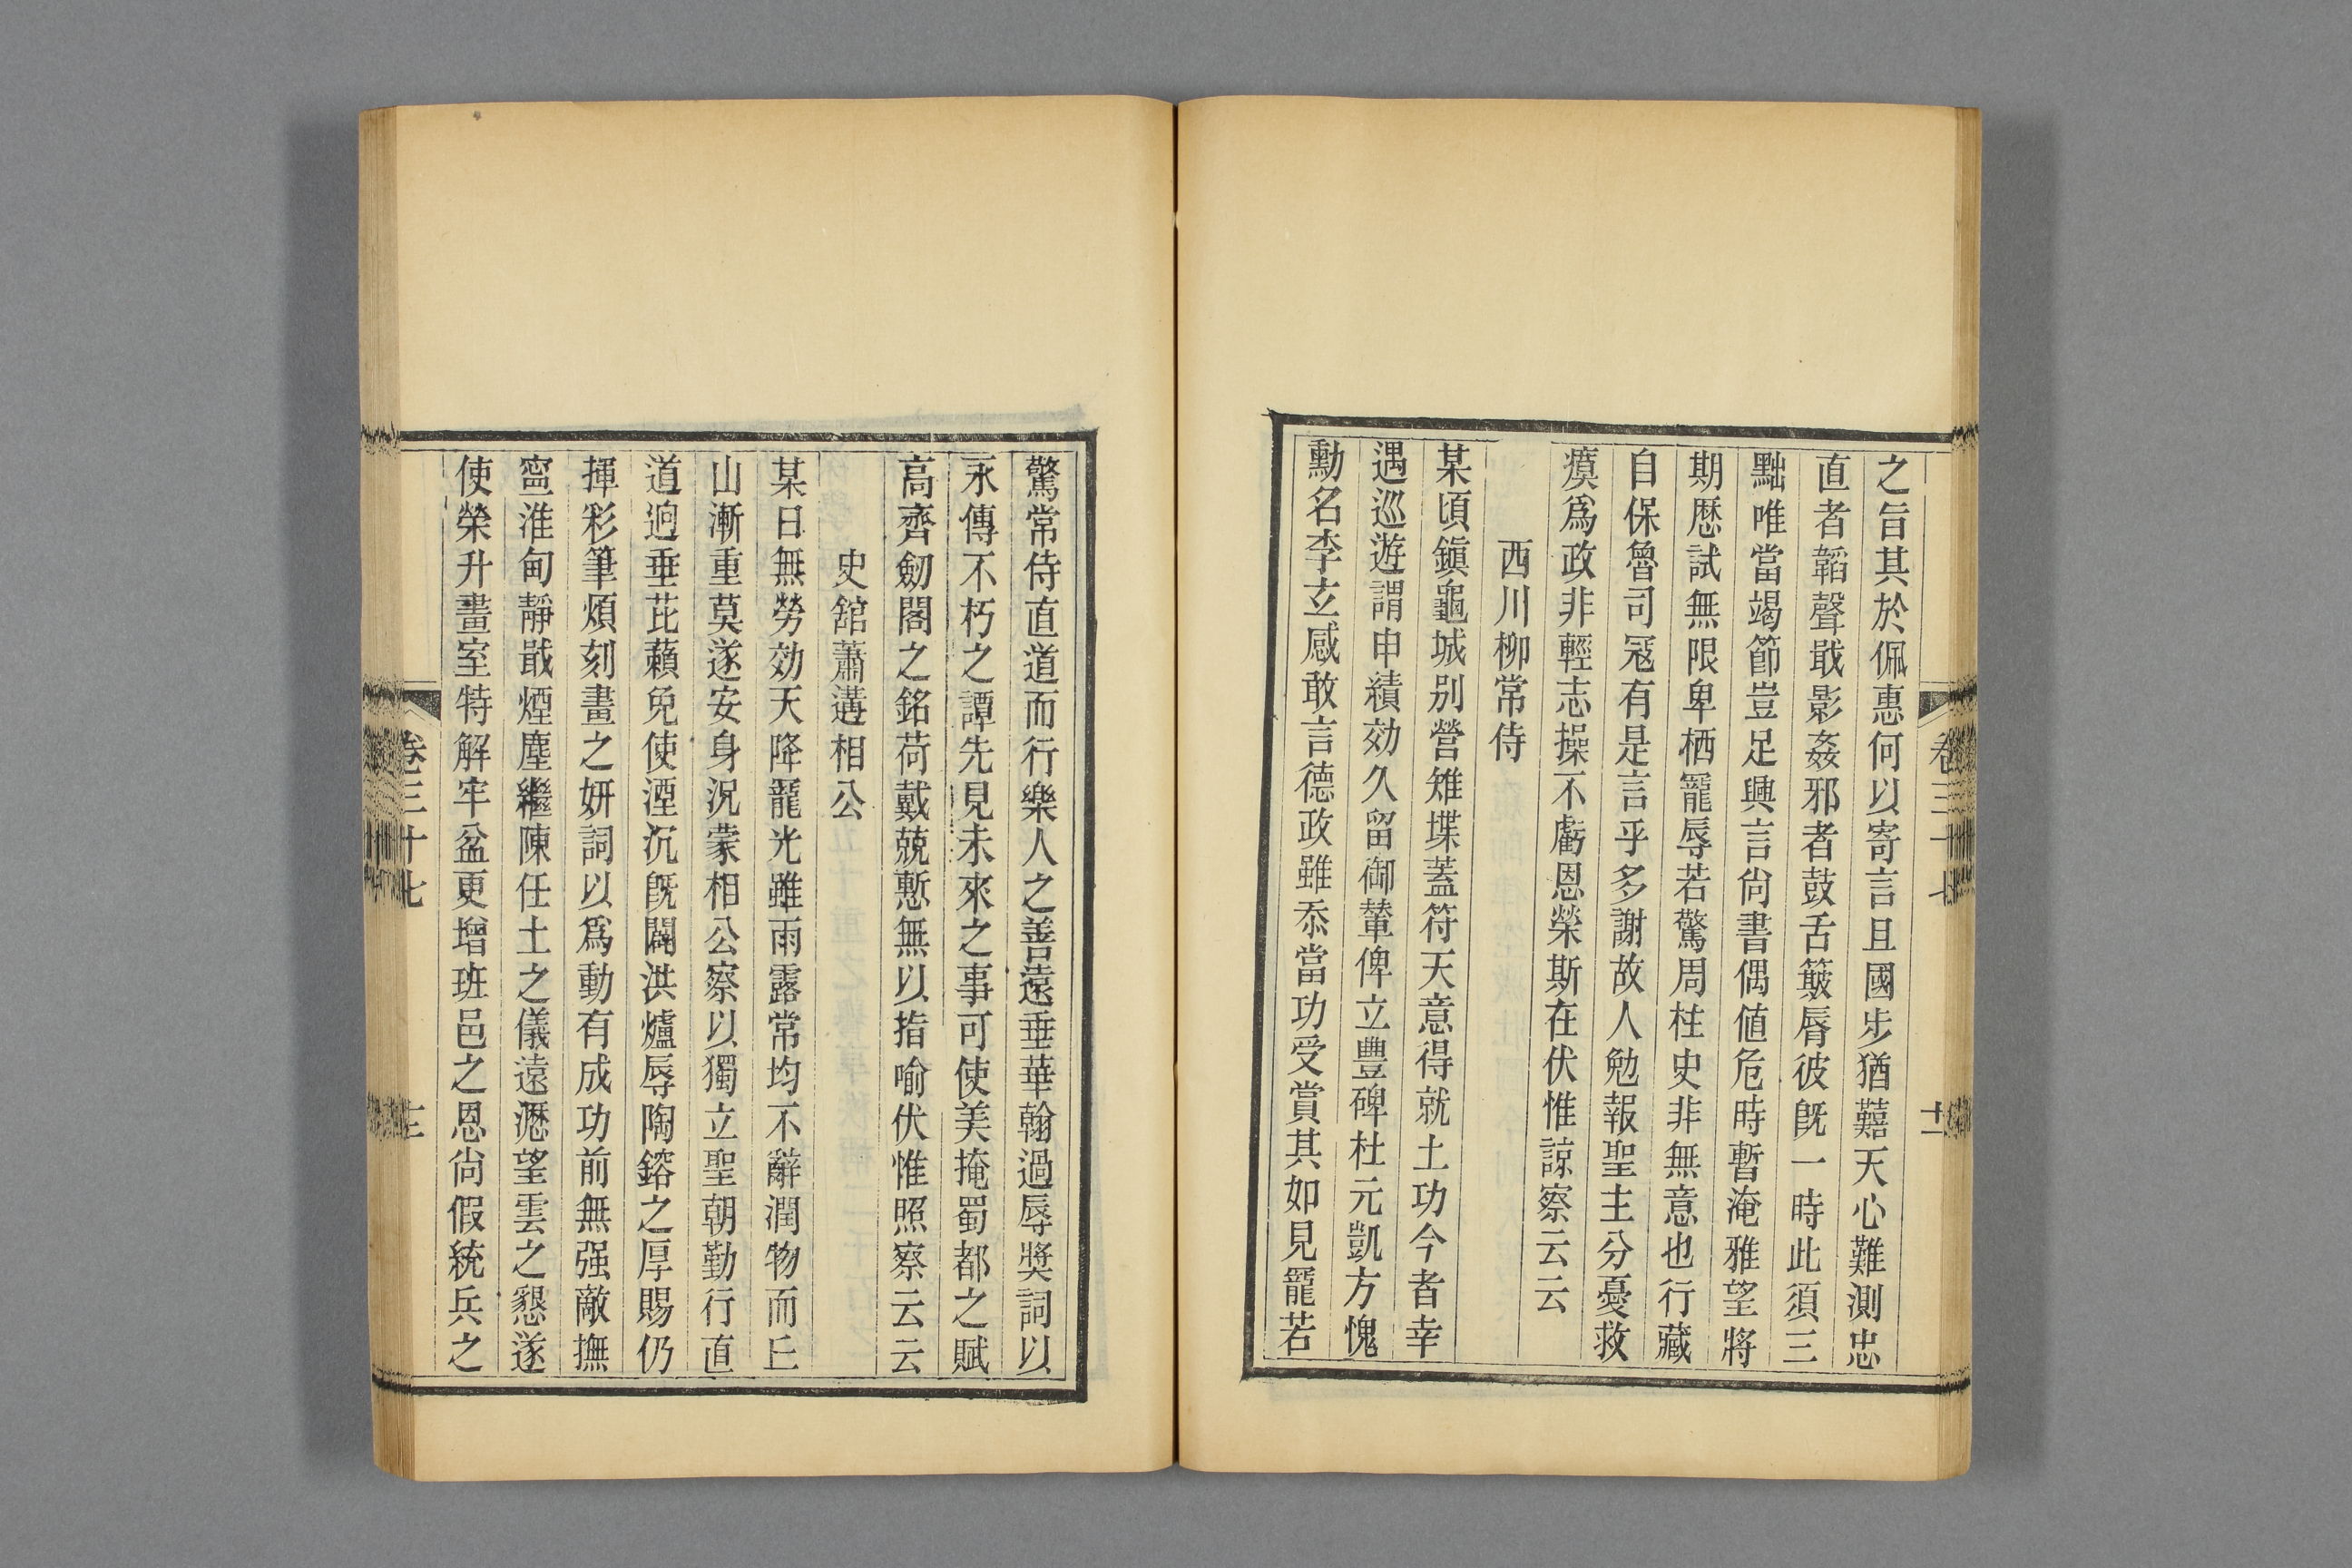 之旨其於佩惠何以寄言且國步猶囏天心難測忠
直者韜聲戢影姦邪者鼓舌簸脣彼旣一時此須三
黜唯當竭節豈足興言尙書偶値危時暫淹雅望將
期歷試無限卑栖寵辱若驚周柱史非無意也行藏
自保魯司寇有是言乎多謝故人勉報聖主分憂救
瘼爲政非輕志操不虧恩榮斯在伏惟諒察云云
西川柳常侍
某頃鎭龜城别營雉堞蓋符天意得就土功今者幸
遇巡遊謂申績効久留御輦俾立豐碑杜元凱方愧
勳名李玄感敢言德政雖忝當功受賞其如見寵若
卷三十七
十二
驚常侍直道而行樂人之善遠垂華翰過辱獎詞以
永傳不朽之譚先見未來之事可使美掩蜀都之賦
高齊劒閣之銘荷戴兢慙無以指喻伏惟照察云云
史舘蕭遘相公
某日無勞効天降寵光雖雨露常均不辭潤物而丘
山漸重莫遂安身況蒙相公察以獨立聖朝勤行直
道迥垂茈藾免使湮沉旣闢洪爐辱陶鎔之厚賜仍
揮彩筆煩刻畫之妍詞以爲動有成功前無强敵撫
寧淮甸靜戢煙塵繼陳任土之儀遠瀝望雲之懇遂
使榮升畫室特解牢盆更增班邑之恩尙假統兵之
卷三十七